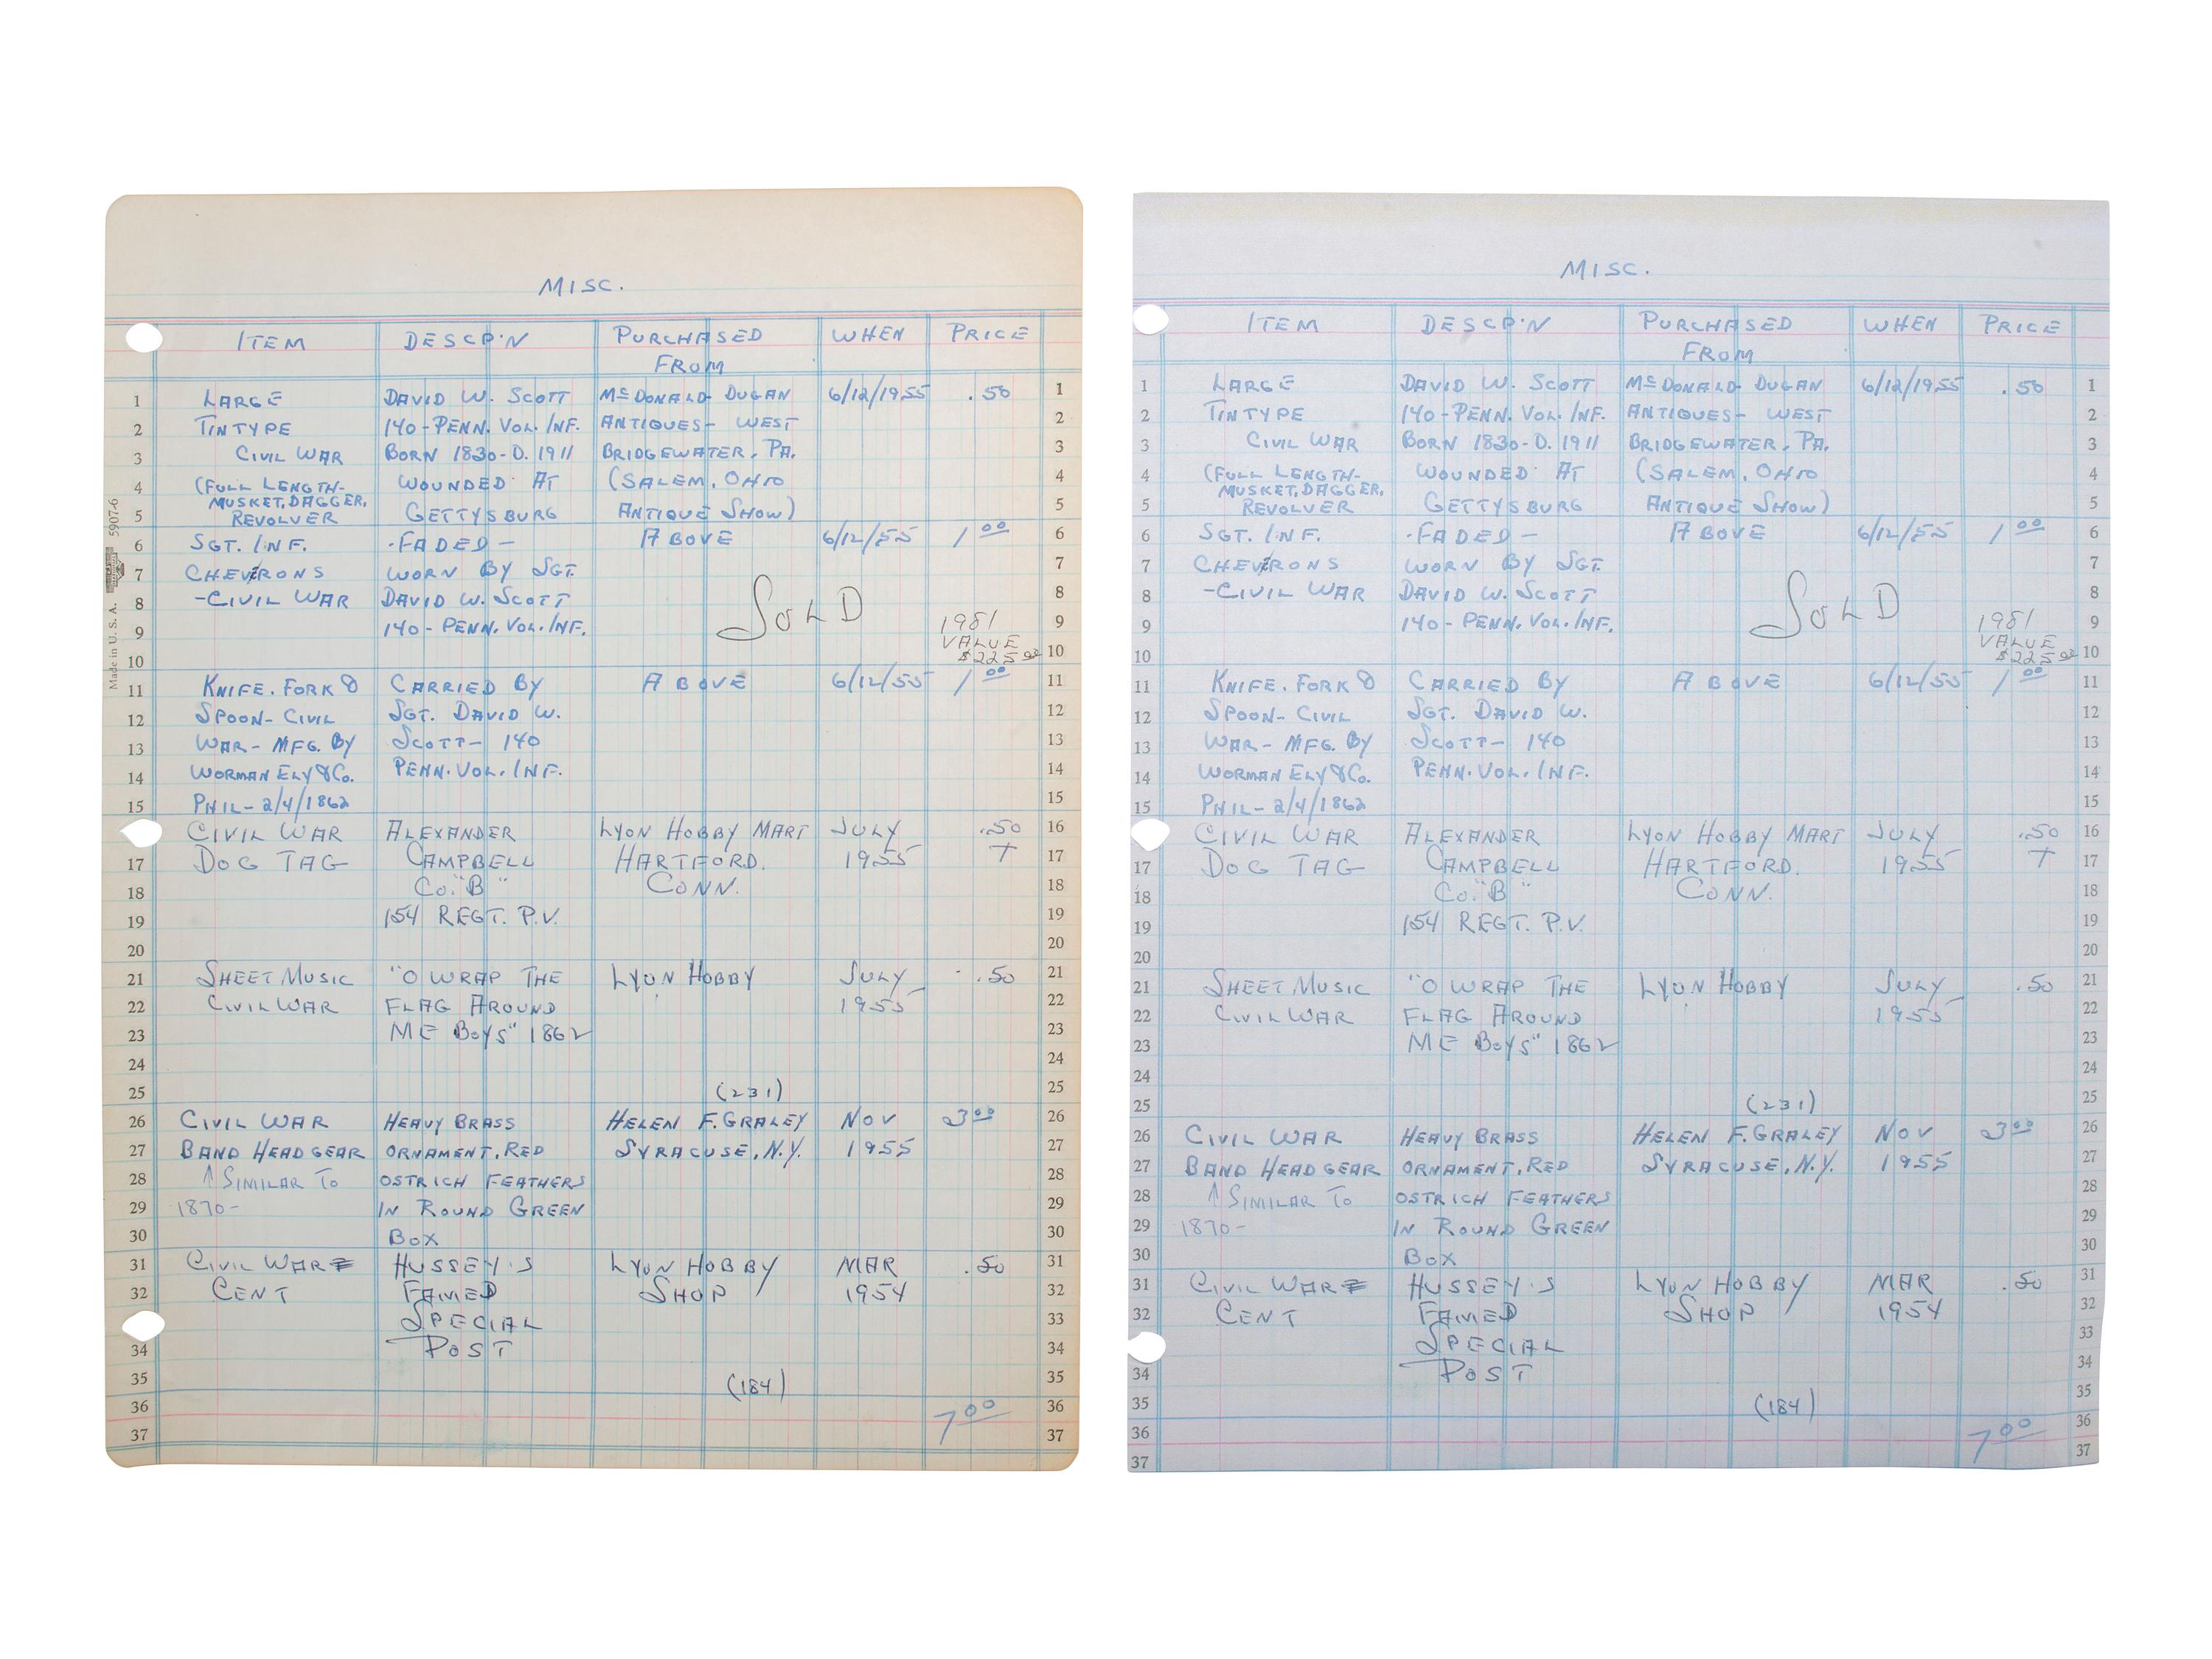 MISC.
ITEM DESCP'N PURCHASED FROM WHEN PRICE
1 LARGE DAVID W. SCOTT McDONALD-DUGAN 6/12/1955 .50 1
2 TINTYPE 140-PENN. VOL. INF. ANTIQUES- WEST 2
3 CIVIL WAR BORN 1830-D. 1911 BRIDGEWATER, PA. 3
4 (FULL LENGTH- WOUNDED AT (SALEM, OHIO 4
MUSKET, DAGGER,
5 REVOLVER GETTYSBURG ANTIQUE SHOW) 5
6 SGT. INF. -FADED- ABOVE 6/12/55 1 00 6
7 CHEVRONS WORN BY SGT. 7
8 -CIVIL WAR DAVID W. SCOTT SOLD 8
9 140-PENN. VOL. INF. 1981 9
VALUE
10 $225 00 10
11 KNIFE. FORK & CARRIED BY ABOVE 6/12/55 1 00 11
12 SPOON- CIVIL SGT. DAVID W. 12
13 WAR- MFG. BY SCOTT- 140 13
14 WORMAN ELY & CO. PENN. VOL. INF. 14
15 PHIL-2/4/1862 15
CIVIL WAR ALEXANDER LYON HOBBY MART JULY .50 16
17 DOG TAG CAMPBELL HARTFORD. 1955 T 17
18 CO. "B" CONN. 18
19 154 REGT. P.V. 19
20 20
21 SHEET MUSIC "O WRAP THE LYON HOBBY JULY .50 21
22 CIVIL WAR FLAG AROUND 1955 22
23 ME BOYS" 1862 23
24 24
25 (231) 25
26 CIVIL WAR HEAVY BRASS HELEN F. GRALEY NOV 3 00 26
27 BAND HEADGEAR ORNAMENT, RED SYRACUSE, N.Y. 1955 27
28 ↑ SIMILAR TO OSTRICH FEATHERS 28
29 1870- IN ROUND GREEN 29
30 BOX 30
31 CIVIL WAR HUSSEY'S LYON HOBBY MAR .50 31
32 CENT FAMED SHOP 1954 32
SPECIAL 33
34 POST 34
35 (184) 35
36 7 00 36
37 37
Made in U. S. A. 5907-6
MISC.
ITEM DESCP'N PURCHASED FROM WHEN PRICE
1 LARGE DAVID W. SCOTT McDONALD-DUGAN 6/12/1955 .50 1
2 TINTYPE 140-PENN. VOL. INF. ANTIQUES- WEST 2
3 CIVIL WAR BORN 1830-D. 1911 BRIDGEWATER, PA. 3
4 (FULL LENGTH- WOUNDED AT (SALEM, OHIO 4
MUSKET, DAGGER,
5 REVOLVER GETTYSBURG ANTIQUE SHOW) 5
6 SGT. INF. -FADED- ABOVE 6/12/55 1 00 6
7 CHEVRONS WORN BY SGT. 7
8 -CIVIL WAR DAVID W. SCOTT SOLD 8
9 140-PENN. VOL. INF. 1981 9
VALUE
10 $225 00 10
11 KNIFE. FORK & CARRIED BY ABOVE 6/12/55 1 00 11
12 SPOON- CIVIL SGT. DAVID W. 12
13 WAR- MFG. BY SCOTT- 140 13
14 WORMAN ELY & CO. PENN. VOL. INF. 14
15 PHIL-2/4/1862 15
CIVIL WAR ALEXANDER LYON HOBBY MART JULY .50 16
17 DOG TAG CAMPBELL HARTFORD. 1955 T 17
18 CO. "B" CONN. 18
19 154 REGT. P.V. 19
20 20
21 SHEET MUSIC "O WRAP THE LYON HOBBY JULY .50 21
22 CIVIL WAR FLAG AROUND 1955 22
23 ME BOYS" 1862 23
24 24
25 (231) 25
26 CIVIL WAR HEAVY BRASS HELEN F. GRALEY NOV 3 00 26
27 BAND HEADGEAR ORNAMENT, RED SYRACUSE, N.Y. 1955 27
28 ↑ SIMILAR TO OSTRICH FEATHERS 28
29 1870- IN ROUND GREEN 29
30 BOX 30
31 CIVIL WAR HUSSEY'S LYON HOBBY MAR .50 31
32 CENT FAMED SHOP 1954 32
SPECIAL 33
34 POST 34
35 (184) 35
36 7 00 36
37 37